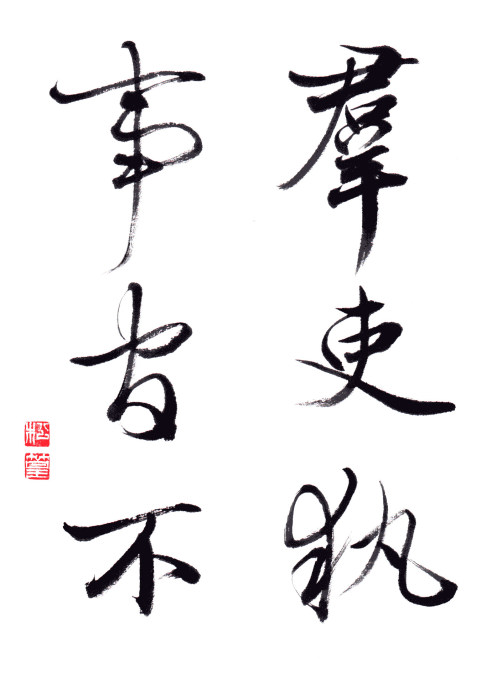 羣吏執
事皆不